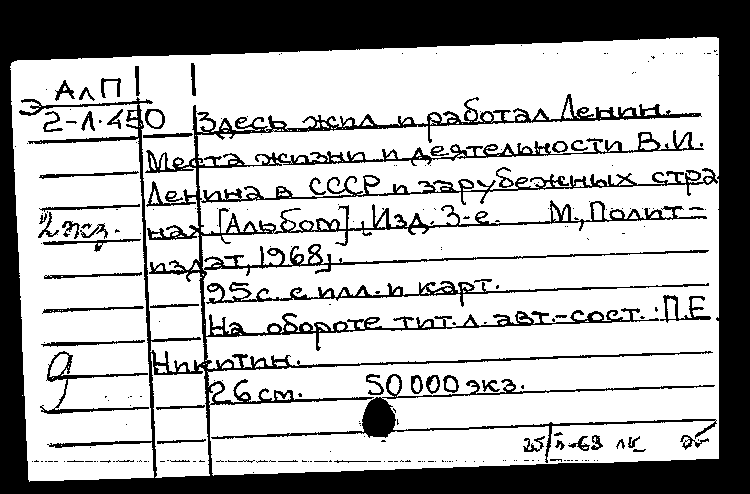 АлП
Э 2-Л.450 Здесь жил и работал Ленин.
Места жизни и деятельности В.И.
Ленина в СССР и зарубежных стра
2 экз. нах [Альбом]. Изд. 3-е. М., Полит-
издат, 1968.
95 с. с илл. и карт.
На обороте тит.л. авт.-сост.: П.Е.
Никитин.
26 см. 50 000 экз.